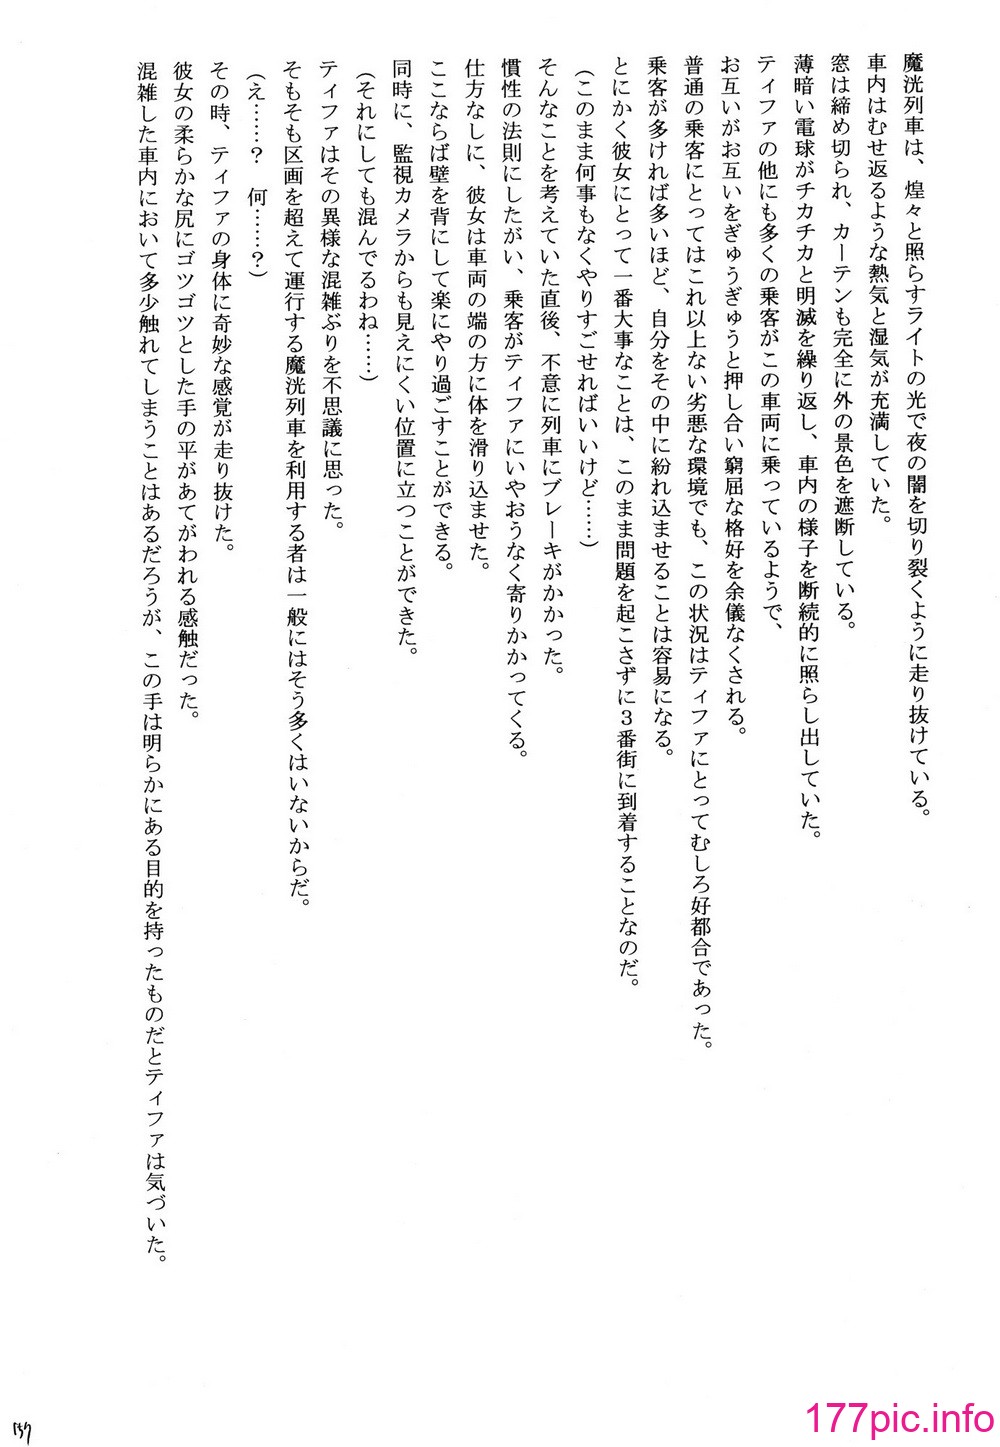 魔洸列車は、煌々と照らすライトの光で夜の闇を切り裂くように走り抜けている。
車内はむせ返るような熱気と湿気が充満していた。
窓は締め切られ、カーテンも完全に外の景色を遮断している。
薄暗い電球がチカチカと明滅を繰り返し、車内の様子を断続的に照らし出していた。
ティファの他にも多くの乗客がこの車両に乗っているようで、
お互いがお互いをぎゅうぎゅうと押し合い窮屈な格好を余儀なくされる。
普通の乗客にとってはこれ以上ない劣悪な環境でも、この状況はティファにとってむしろ好都合であった。
乗客が多ければ多いほど、自分をその中に紛れ込ませることは容易になる。
とにかく彼女にとって一番大事なことは、このまま問題を起こさずに３番街に到着することなのだ。
（このまま何事もなくやりすごせればいいけど……）
そんなことを考えていた直後、不意に列車にブレーキがかかった。
慣性の法則にしたがい、乗客がティファにいやおうなく寄りかかってくる。
仕方なしに、彼女は車両の端の方に体を滑り込ませた。
ここならば壁を背にして楽にやり過ごすことができる。
同時に、監視カメラからも見えにくい位置に立つことができた。
（それにしても混んでるわね……）
ティファはその異様な混雑ぶりを不思議に思った。
そもそも区画を超えて運行する魔洸列車を利用する者は一般にはそう多くはいないからだ。
（え……？　何……？）
その時、ティファの身体に奇妙な感覚が走り抜けた。
彼女の柔らかな尻にゴツゴツとした手の平があてがわれる感触だった。
混雑した車内において多少触れてしまうことはあるだろうが、この手は明らかにある目的を持ったものだとティファは気づいた。
137
177pic.info